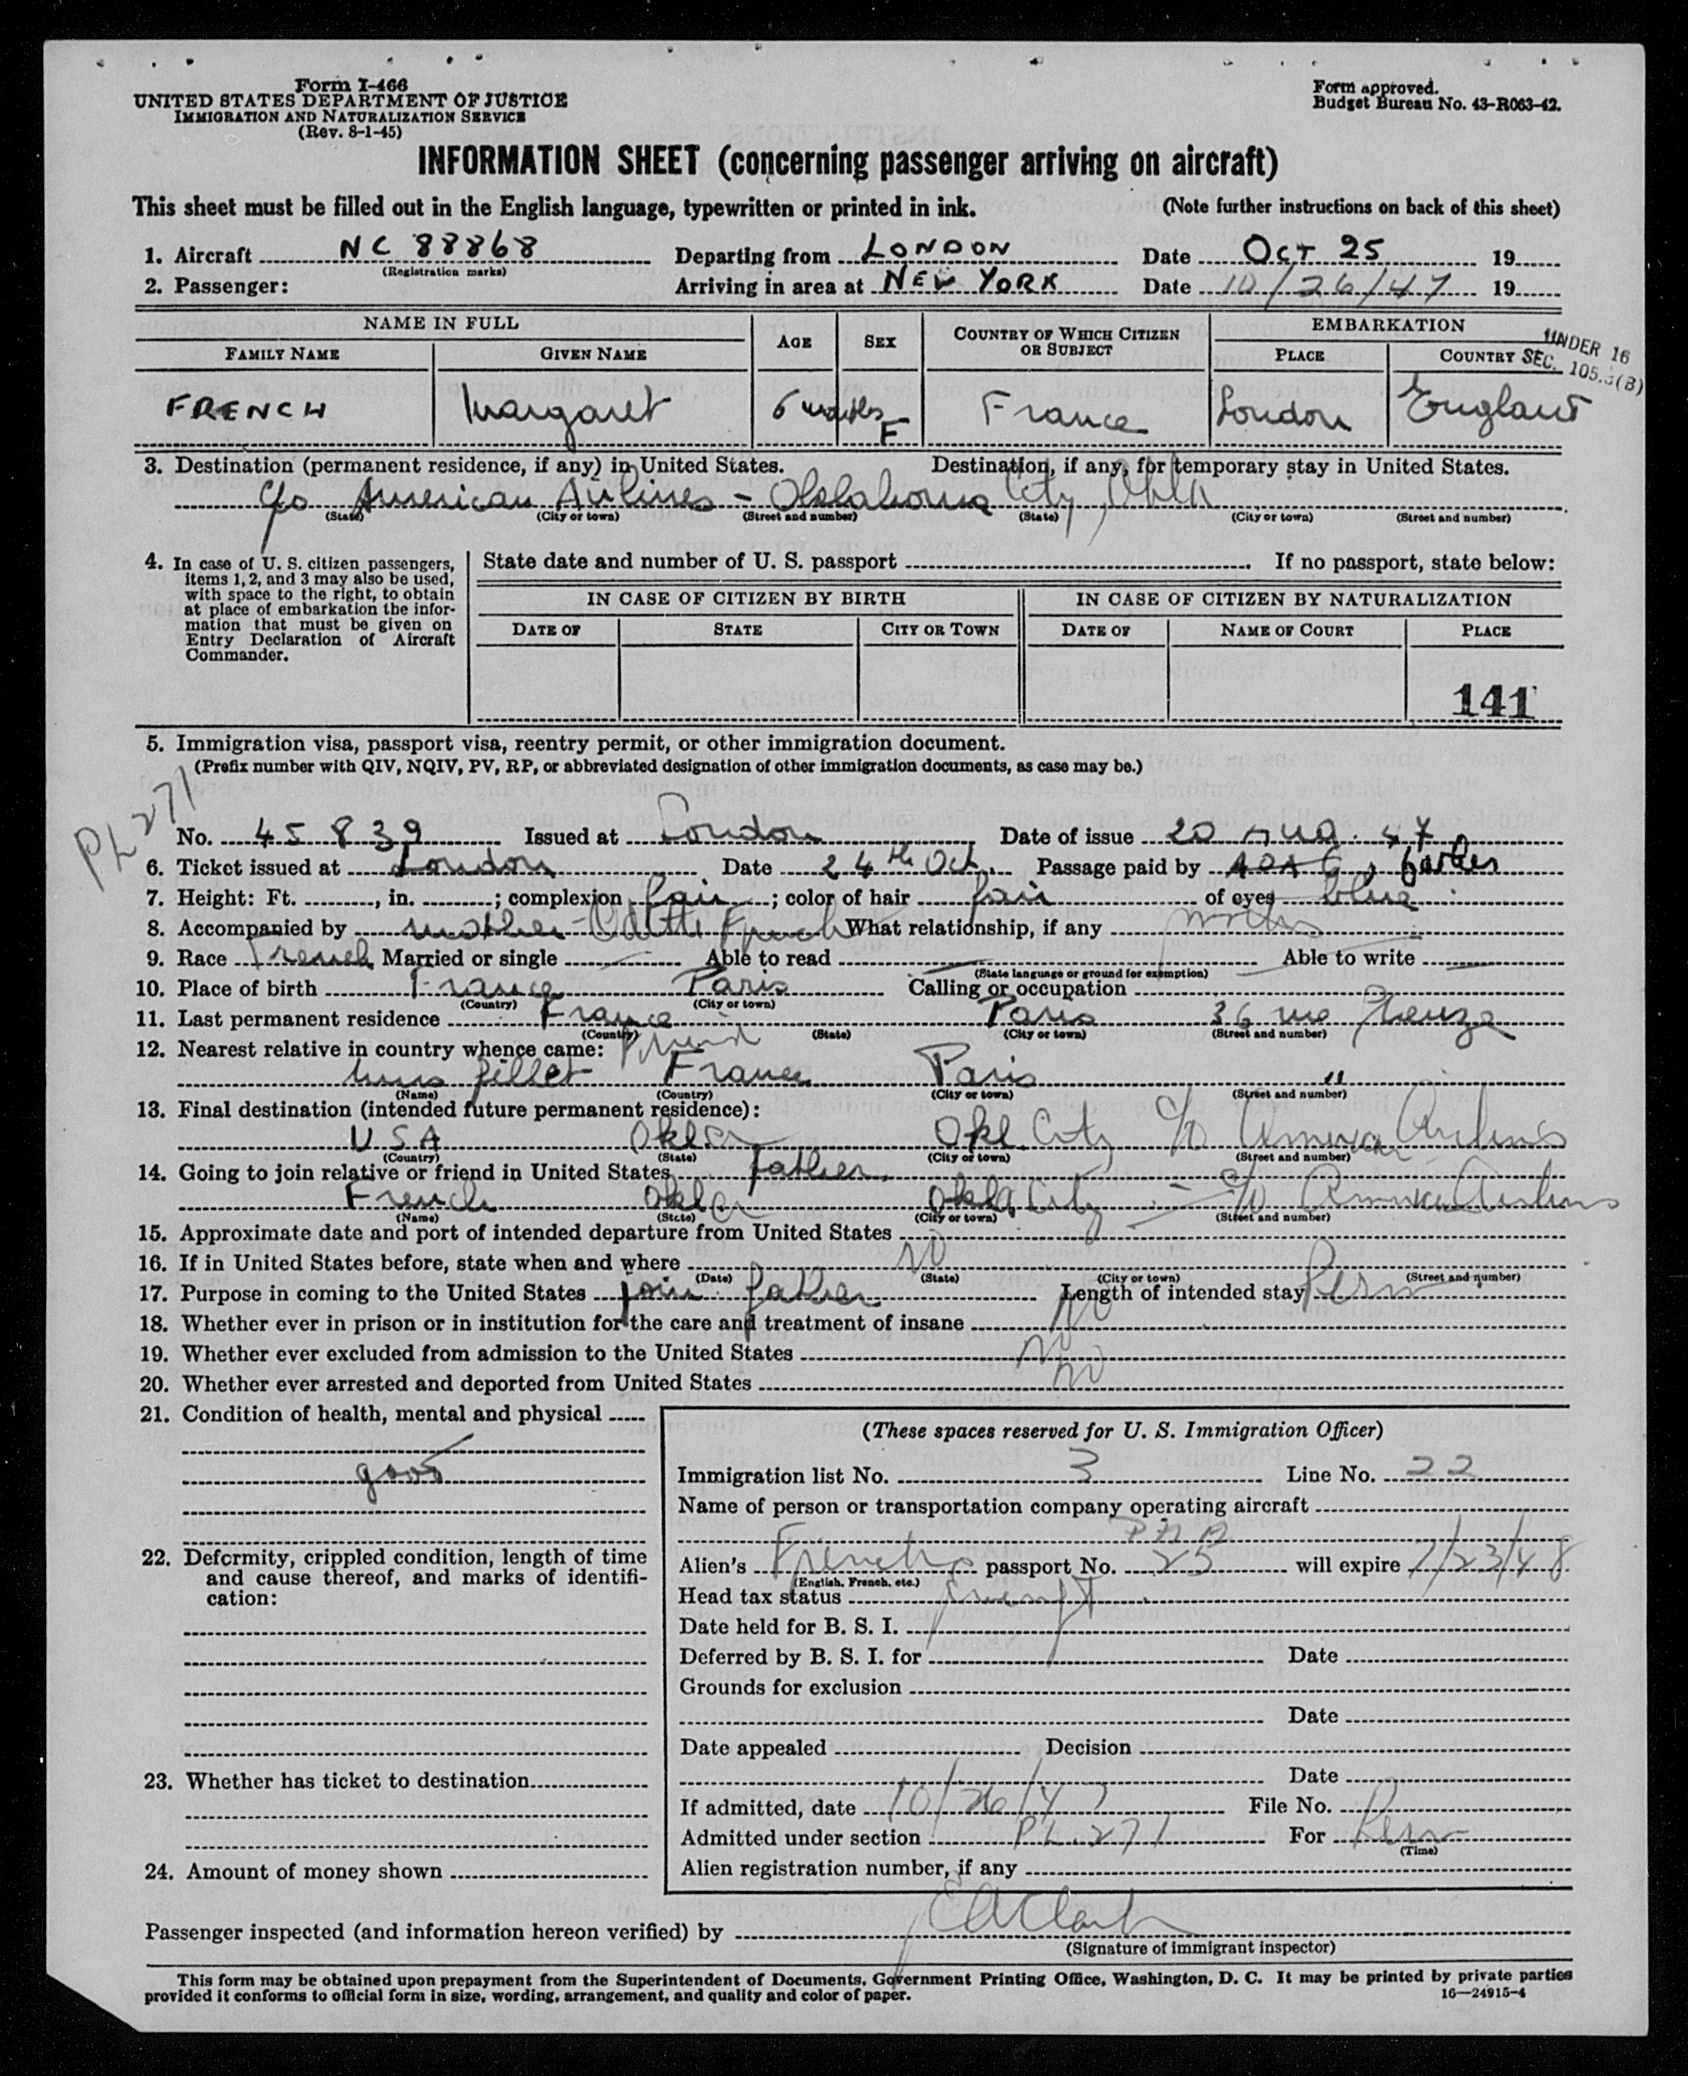 Form I-466
UNITED STATES DEPARTMENT OF JUSTICE
IMMIGRATION AND NATURALIZATION SERVICE
(Rev. 8-1-45)
Form approved.
Budget Bureau No. 43-R063-42.
INFORMATION SHEET (concerning passenger arriving on aircraft)
This sheet must be filled out in the English language, typewritten or printed in ink. (Note further instructions on back of this sheet)
1. Aircraft NC 88868 Departing from LONDON Date OCT 25 19
(Registration marks)
2. Passenger: Arriving in area at NEW YORK Date 10/26/47 19
NAME IN FULL AGE SEX COUNTRY OF WHICH CITIZEN OR SUBJECT EMBARKATION
FAMILY NAME GIVEN NAME PLACE COUNTRY
UNDER 16
SEC. 105.3(B)
FRENCH Margaret 6 months F France London England
3. Destination (permanent residence, if any) in United States. Destination, if any, for temporary stay in United States.
c/o American Airlines - Oklahoma City, Okla
(State) (City or town) (Street and number) (State) (City or town) (Street and number)
4. In case of U. S. citizen passengers, items 1, 2, and 3 may also be used, with space to the right, to obtain at place of embarkation the information that must be given on Entry Declaration of Aircraft Commander.
State date and number of U. S. passport If no passport, state below:
IN CASE OF CITIZEN BY BIRTH IN CASE OF CITIZEN BY NATURALIZATION
DATE OF STATE CITY OR TOWN DATE OF NAME OF COURT PLACE
141
5. Immigration visa, passport visa, reentry permit, or other immigration document.
(Prefix number with QIV, NQIV, PV, RP, or abbreviated designation of other immigration documents, as case may be.)
PL 271
No. 45839 Issued at London Date of issue 20 Aug. 47
6. Ticket issued at London Date 24th Oct. Passage paid by father
7. Height: Ft. , in. ; complexion fair ; color of hair fair of eyes blue
8. Accompanied by mother - Odette French What relationship, if any mother
9. Race French Married or single — Able to read — Able to write —
(State language or ground for exemption)
10. Place of birth France Paris Calling or occupation
(Country) (City or town)
11. Last permanent residence France Paris 36 rue Greuze
(Country) (State) (City or town) (Street and number)
12. Nearest relative in country whence came: Friend
Mrs Fillet France Paris "
(Name) (Country) (City or town) (Street and number)
13. Final destination (intended future permanent residence):
USA Okla Okl City c/o American Airlines
(Country) (State) (City or town) (Street and number)
14. Going to join relative or friend in United States father
French Okla Okla City - c/o American Airlines
(Name) (State) (City or town) (Street and number)
15. Approximate date and port of intended departure from United States
16. If in United States before, state when and where NO
(Date) (State) (City or town) (Street and number)
17. Purpose in coming to the United States join father Length of intended stay Perm
18. Whether ever in prison or in institution for the care and treatment of insane No
19. Whether ever excluded from admission to the United States No
20. Whether ever arrested and deported from United States No
21. Condition of health, mental and physical
good
22. Deformity, crippled condition, length of time and cause thereof, and marks of identification:
23. Whether has ticket to destination
24. Amount of money shown
(These spaces reserved for U. S. Immigration Officer)
Immigration list No. 3 Line No. 22
Name of person or transportation company operating aircraft
PAA
Alien's French passport No. 25 will expire 7/23/48
(English, French, etc.)
Head tax status exempt
Date held for B. S. I.
Deferred by B. S. I. for Date
Grounds for exclusion
Date
Date appealed Decision
Date
If admitted, date 10/26/47 File No.
Admitted under section PL. 271 For Perm
(Time)
Alien registration number, if any
Passenger inspected (and information hereon verified) by EA Clark
(Signature of immigrant inspector)
This form may be obtained upon prepayment from the Superintendent of Documents, Government Printing Office, Washington, D. C. It may be printed by private parties
provided it conforms to official form in size, wording, arrangement, and quality and color of paper. 16—24915-4